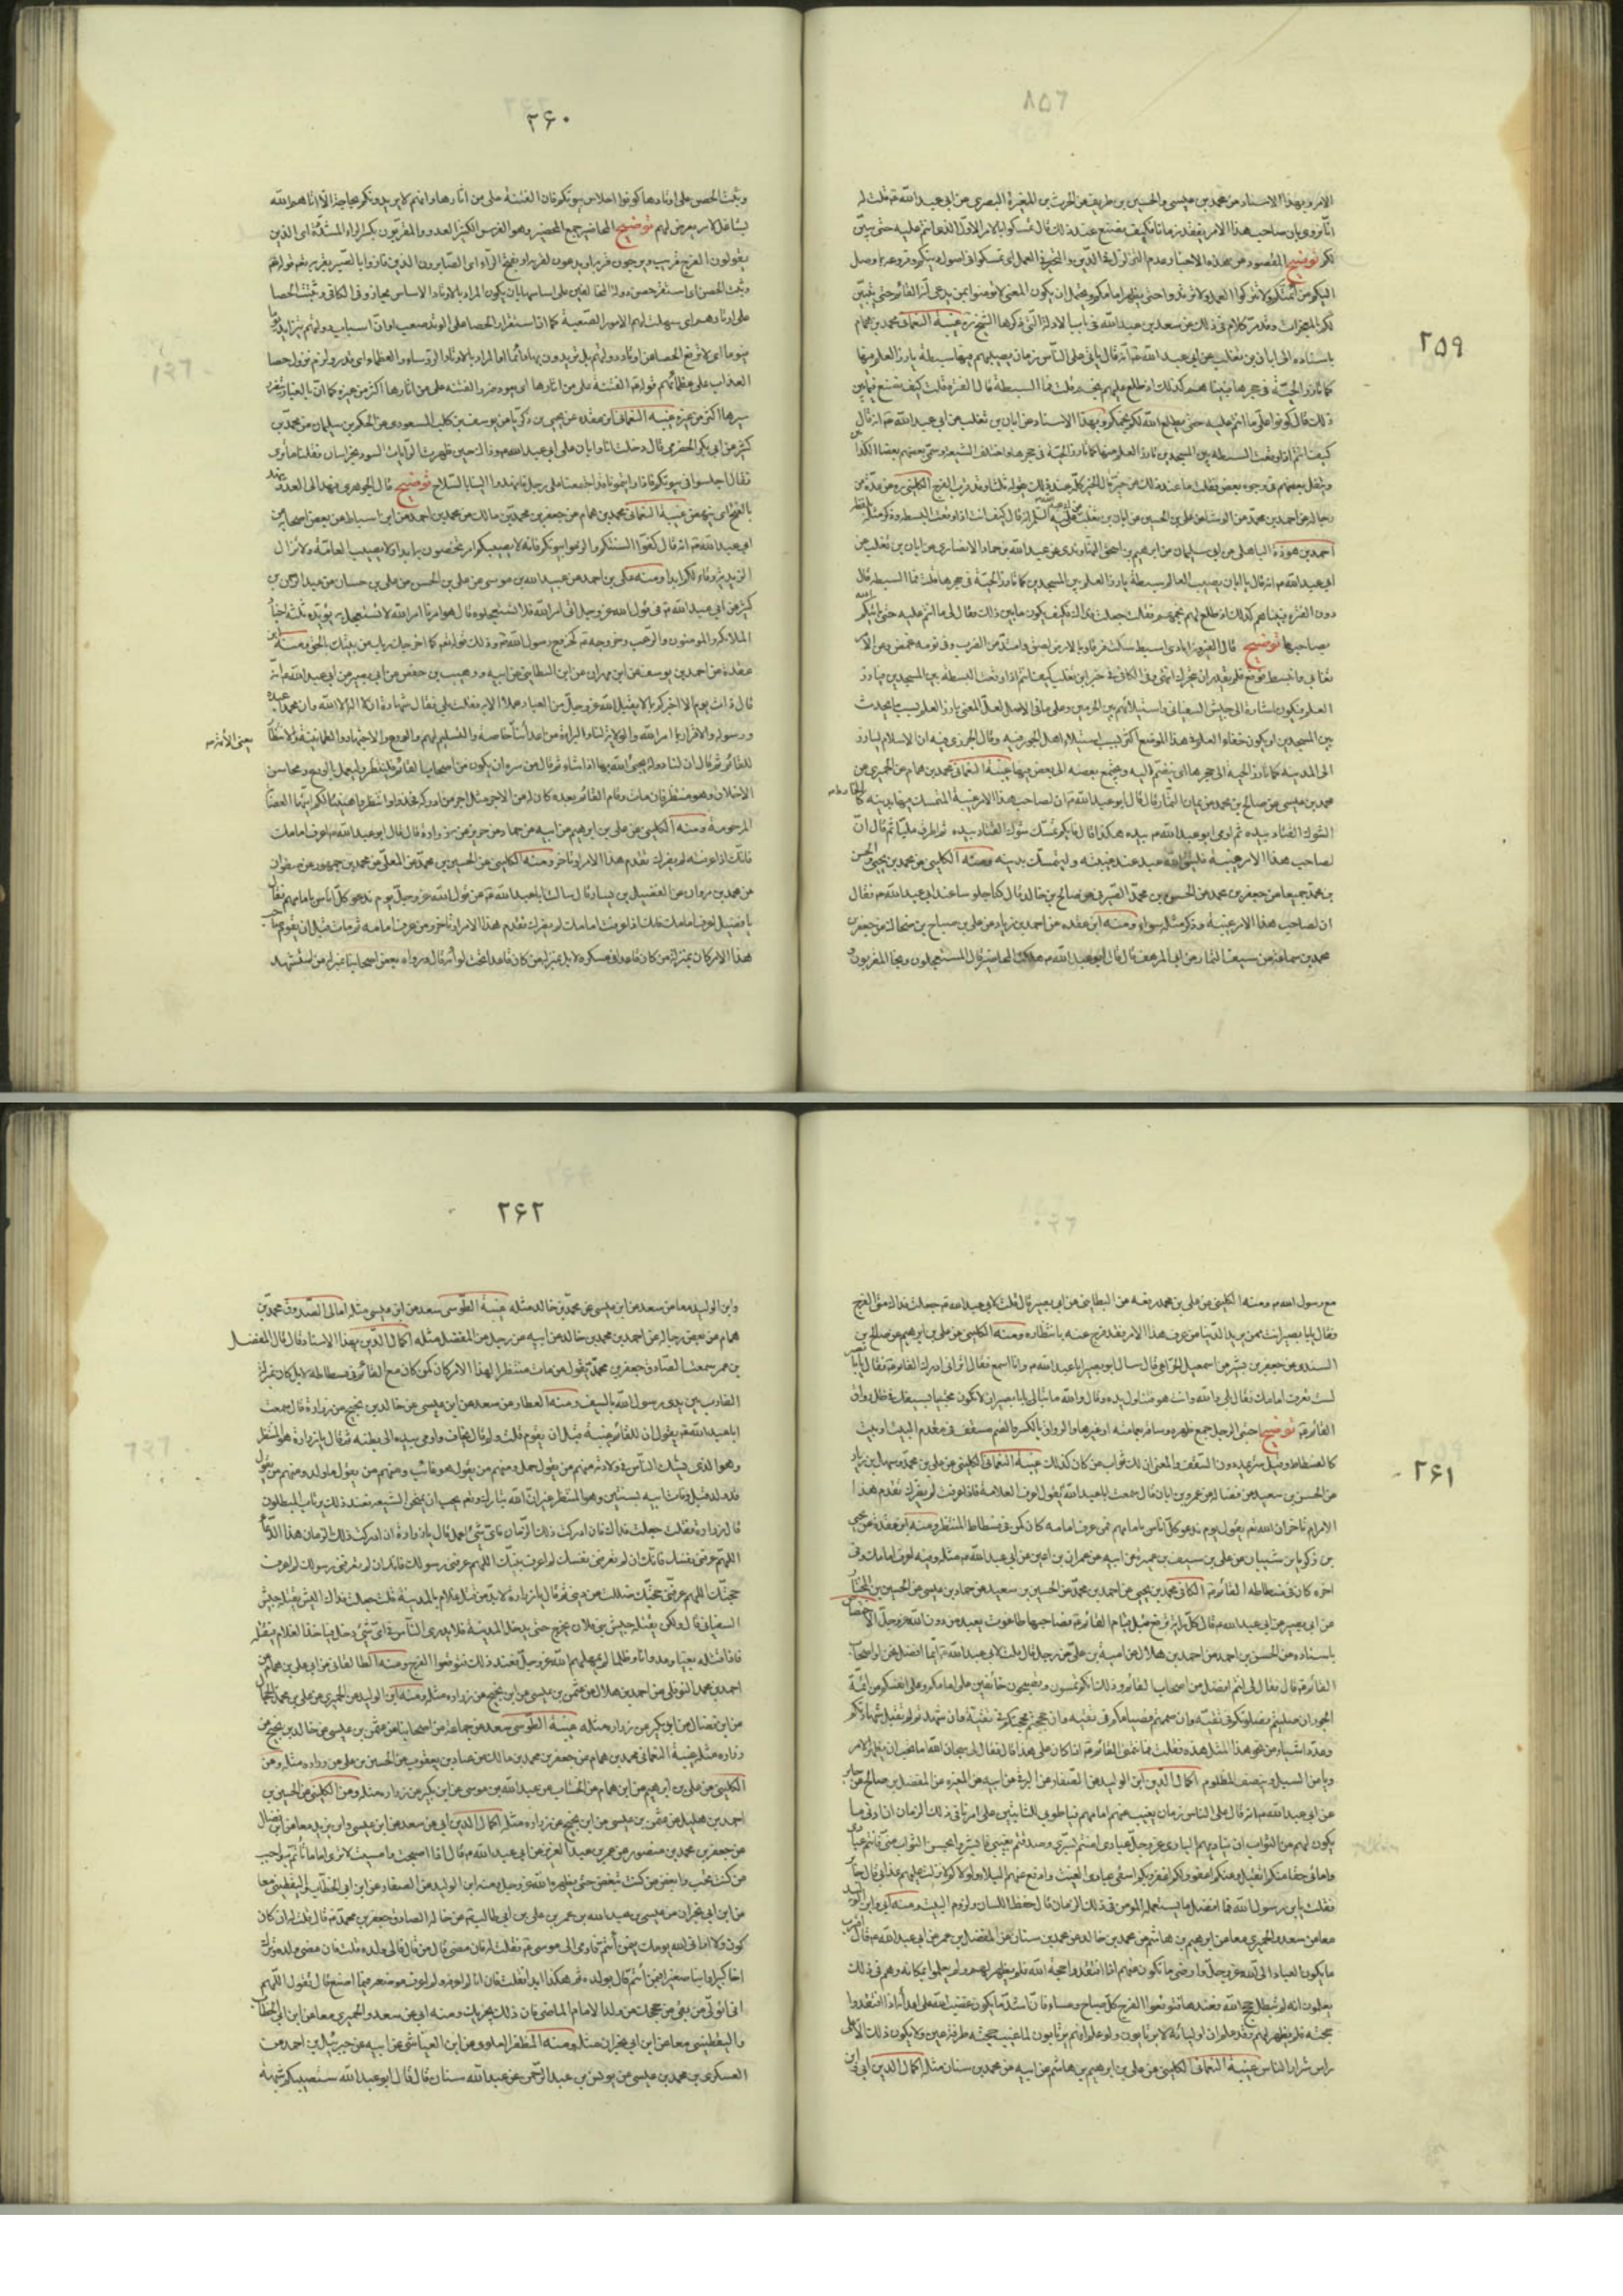 ۲۵۹
الامر وبهذا الاسناد عن محمد بن عيسى والحسين بن طريف عن الحرث بن المغيرة البصرى عن ابى عبد الله ع قال قلت له
انا نروى بان صاحب هذا الامر يفقد زمانا فكيف نصنع عند ذلك قال تمسكوا بالامر الاول الذى انتم عليه حتى يبين
لكم توضيح المقصود من هذه الاخبار عدم التزلزل فى الدين والتحير فى العمل اى تمسكوا فى اصول دينكم وفروعه بما وصل
اليكم من ائمتكم ولا تتركوا العمل ولا ترتدوا حتى يظهر امامكم ويحتمل ان يكون المعنى لا تؤمنوا بمن يدعى انه القائم حتى يتبين
لكم بالمعجزات وقد مر كلام فى ذلك عن سعد بن عبد الله فى باب الادلة التى ذكرها الشيخ ره غيبة النعمانى محمد بن همام
باسناده الى ابان بن تغلب عن ابى عبد الله ع انه قال ياتى على الناس زمان يصيبهم فيها سبطة يارز العلم فيها
كما تارز الحية فى جحرها فبينا هم كذلك اذ طلع عليهم نجم قلت فما السبطة قال الفترة قلت كيف نصنع فيما بين
ذلك قال كونوا على ما انتم عليه حتى يطلع الله لكم نجمكم وبهذا الاسناد عن ابان بن تغلب عن ابى عبد الله ع انه قال
كيف انتم اذا وقعت السبطة بين المسجدين تارز العلم فيها كما تارز الحية فى جحرها واختلف الشيعة وسمى بعضهم بعضا كذابين
ويتفل بعضهم فى وجوه بعض فقلت ما عند ذلك من خير قال الخير كله عند ذلك يقوله ثلثا وقد قرب الفرج الكلينى ره عن عدة من
رجاله عن احمد بن محمد عن الوشاء عن على بن الحسين عن ابان بن تغلب عن ابى عبد الله عليه السلم انه قال كيف انت اذا وقعت البسطة وذكر مثله بلفظه
احمد بن هوذة الباهلى عن ابى سليمان عن ابرهيم بن اسحق النهاوندى عن عبد الله بن حماد الانصارى عن ابان بن تغلب عن
ابى عبد الله ع انه قال يا ابان يصيب العالم سبطة يارز العلم بين المسجدين كما تارز الحية فى جحرها قلت فما السبطة قال
دون الفترة فبينما هم كذلك اذ طلع لهم نجمهم فقلت جعلت فداك فكيف يكون ما بين ذلك فقال لى ما انتم عليه حتى ياتيكم الله
بصاحبها توضيح قال الفيروزابادى اسبط سكت فرقا وبالارض لصق وامتد من الضرب وفى نومه غمض وعن الامر
تغابى وانبسط ووقع فلم يقدر ان يتحرك انتهى وفى الكافى فى خبر ابن تغلب كيف انتم اذا وقعت البطشة بين المسجدين فيارز
العلم فيكون اشارة الى جيش السفيانى واستيلائهم بين الحرمين وعلى ما فى الاصل لعل المعنى يارز العلم بسبب ما يحدث
بين المسجدين او يكون خفاء العلم فى هذا الموضع اكثر بسبب استيلاء اهل الجور فيه وقال الجزرى فيه ان الاسلام ليارز
الى المدينة كما تارز الحية الى جحرها اى ينضم اليه ويجتمع بعضه الى بعض فيها غيبة النعمانى محمد بن همام عن الحميرى عن
محمد بن عيسى عن صالح بن محمد عن يمان التمار قال قال ابو عبد الله ع ان لصاحب هذا الامر غيبة المتمسك فيها بدينه كالخارط
لشوك القتاد بيده ثم اومى ابو عبد الله ع بيده هكذا قال فايكم يمسك شوك القتاد بيده ثم اطرق مليا ثم قال ان
لصاحب هذا الامر غيبة فليتق الله عبد عند غيبته وليتمسك بدينه ومنه الكلينى عن محمد بن يحيى والحسن
بن محمد جميعا عن جعفر بن محمد عن الحسن بن محمد الصيرفى عن صالح بن خالد قال كنا جلوسا عند ابى عبد الله ع فقال
ان لصاحب هذا الامر غيبة وذكر مثله سواء ومنه ابن عقدة عن احمد بن زياد عن على بن صباح بن ضحاك عن جعفر بن
محمد بن سماعة عن سيف التمار عن ابى المرهف قال قال ابو عبد الله ع هلكت المحاضير قال المستعجلون ونجا المقربون
۲۶۰
وثبت الحصن على اوتادها كونوا احلاس بيوتكم فان الفتنة على من اثارها وانهم لا يريدونكم بجائحة الا اتاهم الله
بشاغل لامر يعرض لهم توضيح المحاضير جمع المحضير وهو الفرس الكثير العدو والمقربون بكسر الراء المشددة اى الذين
يقولون الفرج قريب ويرجون قربه او يدعون لقربه او بفتح الراء اى الصابرون الذين فازوا بالصبر بقربه تعم قوله ع
وثبت الحصن اى استقر حصن دولة المخالفين على اساسها بان يكون المراد بالاوتاد الاساس مجازا وفى الكافى وثبتت الحصا
على اوتادهم اى سهلت لهم الامور الصعبة كما ان استقرار الحصا على الوتد صعب او ان اسباب دولتهم تتزايد يوما
فيوما اى لا ترفع الحصا عن اوتاد دولتهم بل يدقون بها دائما او المراد بالاوتاد الرؤساء والعظماء اى قدر ولزم نزول حصا
العذاب على عظمائهم قوله ع الفتنة على من اثارها اى يعود ضرر الفتنة على من اثارها اكثر من غيره كما ان بالغبار يتضرر
مثيرها اكثر من غيره غيبة النعمانى ابن عقدة عن يحيى بن زكريا عن يوسف بن كليب المسعودى عن الحكم بن سليمان عن محمد بن
كثير عن ابى بكر الحضرمى قال دخلت انا وابان على ابى عبد الله ع وذاك حين ظهرت الرايات السود بخراسان فقلنا ما ترى
فقال اجلسوا فى بيوتكم فاذا رايتمونا قد اجتمعنا على رجل فانهدوا الينا بالسلاح توضيح قال الجوهرى نهد الى العدو ينهد
بالفتح اى نهض غيبة النعمانى محمد بن همام عن جعفر بن محمد بن مالك عن محمد بن احمد عن ابن اسباط عن بعض اصحابه عن
ابى عبد الله ع انه قال كفوا السنتكم والزموا بيوتكم فانه لا يصيبكم امر تخصون به ابدا ولا يصيب العامة ولا تزال
الزيدية وقاء لكم ابدا ومنه على بن احمد عن عبيد الله بن موسى عن على بن الحسن عن على بن حسان عن عبد الرحمن بن
كثير عن ابى عبد الله ع فى قول الله عز وجل اتى امر الله فلا تستعجلوه قال هو امرنا امر الله لا نستعجل به يؤيده ثلثة اجناد
الملائكة والمؤمنون والرعب وخروجه ع كخروج رسول الله ص وذلك قوله تعم كما اخرجك ربك من بيتك بالحق ومنه ابن
عقدة عن احمد بن يوسف عن ابن مهران عن ابن البطاينى عن ابيه ووهيب بن حفص عن ابى بصير عن ابى عبد الله ع انه
قال ذات يوم الا اخبركم بما لا يقبل الله عز وجل من العباد عملا الا به فقلت بلى فقال شهادة ان لا اله الا الله وان محمدا عبده
ورسوله والاقرار بما امر الله والولاية لنا والبراءة من اعدائنا يعنى الائمة خاصة والتسليم لهم والورع والاجتهاد والطمانينة والانتظار
للقائم ثم قال ان لنا دولة يجئ الله بها اذا شاء ثم قال من سره ان يكون من اصحاب القائم فلينتظر وليعمل بالورع ومحاسن
الاخلاق وهو منتظر فان مات وقام القائم بعده كان له من الاجر مثل اجر من ادركه فجدوا وانتظروا هنيئا لكم ايتها العصابة
المرحومة ومنه الكلينى عن على بن ابرهيم عن ابيه عن حماد عن حريز عن زرارة قال قال ابو عبد الله ع اعرف امامك
فانك اذا عرفته لم يضرك تقدم هذا الامر او تاخر ومنه الكلينى عن الحسين بن محمد عن المعلى عن محمد بن جمهور عن صفوان
عن محمد بن مروان عن الفضيل بن يسار قال سالت ابا عبد الله ع عن قول الله عز وجل يوم ندعو كل اناس بامامهم فقال
يا فضيل اعرف امامك فانك اذا عرفت امامك لم يضرك تقدم هذا الامر او تاخر ومن عرف امامه ثم مات قبل ان يقوم صاحب
هذا الامر كان بمنزلة من كان قاعدا فى عسكره لا بل بمنزلة من كان قاعدا تحت لوائه قال ورواه بعض اصحابنا بمنزلة من استشهد
۲۶۱
مع رسول الله ص ومنه الكلينى عن على بن محمد رفعه عن البطاينى عن ابى بصير قال قلت لابى عبد الله ع جعلت فداك متى الفرج
فقال يا ابا بصير انت ممن يريد الدنيا من عرف هذا الامر فقد فرج عنه بانتظاره ومنه الكلينى عن على بن ابرهيم عن صالح بن
السندى عن جعفر بن بشير عن اسمعيل الخزاعى قال سال ابو بصير ابا عبد الله ع وانا اسمع فقال ترانى ادرك القائم ع فقال يا ابا بصير
لست تعرف امامك فقال بلى والله وانت هو فتناول يده وقال والله ما تبالى يا با بصير ان لا تكون محتبيا بسيفك فى ظل رواق
القائم ع توضيح احتبى الرجل جمع ظهره وساقه بعمامته او غيرها والرواق بالكسر والضم سقف فى مقدم البيت او بيت
كالفسطاط وقيل ستر يمد دون السقف والمعنى ان لك ثواب من كان كذلك غيبة النعمانى الكلينى عن على بن محمد عن سهل بن زياد
عن الحسين بن سعيد عن فضالة عن عمر بن ابان قال سمعت ابا عبد الله ع يقول اعرف العلامة فاذا عرفت لم يضرك تقدم هذا
الامر ام تاخر ان الله تعم يقول يوم ندعو كل اناس بامامهم فمن عرف امامه كان كمن كان فى فسطاط المنتظر ومنه ابن عقدة عن يحيى
بن زكريا بن شيبان عن على بن سيف بن عميرة عن ابيه عن حمران بن اعين عن ابى عبد الله ع مثله وفيه اعرف امامك وفى
اخره كان فى فسطاطه القائم ع الكافى محمد بن يحيى عن احمد بن محمد عن الحسين بن سعيد عن حماد بن عيسى عن الحسين بن المختار
عن ابى بصير عن ابى عبد الله ع قال كل راية ترفع قبل قيام القائم ع فصاحبها طاغوت يعبد من دون الله عز وجل الاختصاص
باسناده عن الحسن بن احمد عن احمد بن هلال عن امية بن على عن رجل قال قلت لابى عبد الله ع ايما افضل نحن او اصحاب
القائم ع قال فقال لى انتم افضل من اصحاب القائم وذلك انكم تمسون وتصبحون خائفين على امامكم وعلى انفسكم من ائمة
الجور ان صليتم فصلوتكم فى تقية وان صمتم فصيامكم فى تقية وان حججتم فحجكم فى تقية وان شهدتم لم تقبل شهادتكم
وعد اشياء من نحو هذا مثل هذه فقلت فما نتمنى القائم ع اذا كان على هذا قال فقال لى سبحان الله اما تحب ان يظهر العدل
ويامن السبل وينصف المظلوم اكمال الدين ابن الوليد عن الصفار عن البرقى عن ابيه عن المغيرة عن المفضل بن صالح عن جابر
عن ابى عبد الله ع انه قال ياتى على الناس زمان يغيب عنهم امامهم فيا طوبى للثابتين على امرنا فى ذلك الزمان ان ادنى ما
يكون لهم من الثواب ان يناديهم البارى عز وجل عبادى امنتم بسرى وصدقتم بغيبى فابشروا بحسن الثواب منى فانتم عبادى
وامائى حقا منكم اتقبل وعنكم اعفو ولكم اغفر وبكم اسقى عبادى الغيث وادفع عنهم البلاء ولولاكم لانزلت عليهم عذابى قال جابر
فقلت يا بن رسول الله فما افضل ما يستعمله المؤمن فى ذلك الزمان قال حفظ اللسان ولزوم البيت ومنه ابى وابن الوليد
معا عن سعد والحميرى معا عن ابرهيم بن هاشم عن محمد بن خالد عن محمد بن سنان عن المفضل بن عمر عن ابى عبد الله ع قال اقرب
ما يكون العباد الى الله عز وجل وارضى ما يكون عنهم اذا افتقدوا حجة الله فلم يظهر لهم ولم يعلموا بمكانه وهم فى ذلك
يعلمون انه لم تبطل حجج الله فعندها فتوقعوا الفرج كل صباح ومساء فان اشد ما يكون غضب الله على اعدائه اذا افتقدوا
حجته فلم يظهر لهم وقد علم ان اولياءه لا يرتابون ولو علم انهم يرتابون لما غيب حجته طرفة عين ولا يكون ذلك الا على
راس شرار الناس غيبة النعمانى الكلينى عن على بن ابرهيم بن هاشم عن ابيه عن محمد بن سنان مثله اكمال الدين ابى
۲۶۲
وابن الوليد معا عن سعد عن ابن عيسى عن محمد بن خالد مثله غيبة الطوسى سعد عن ابن عيسى مثله امالى الصدوق محمد بن
همام عن بعض رجاله عن احمد بن محمد بن خالد عن ابيه عن رجل عن المفضل مثله اكمال الدين بهذا الاسناد قال قال المفضل
بن عمر سمعت الصادق جعفر بن محمد ع يقول من مات منتظرا لهذا الامر كان كمن كان مع القائم فى فسطاطه لا بل كان بمنزلة
الضارب بين يدى رسول الله بالسيف ومنه العطار عن سعد عن ابن عيسى عن خالد بن نجيح عن زرارة قال سمعت
ابا عبد الله ع يقول ان للقائم غيبة قبل ان يقوم قلت ولم قال يخاف واومى بيده الى بطنه ثم قال يا زرارة هو المنتظر
وهو الذى يشك الناس فى ولادته منهم من يقول حمل ومنهم من يقول هو غائب ومنهم من يقول ما ولد ومنهم من يقول
قد ولد قبل وفات ابيه بسنتين وهو المنتظر غير ان الله تبارك وتعم يحب ان يمتحن الشيعة فعند ذلك يرتاب المبطلون
قال زرارة فقلت جعلت فداك فان ادركت ذلك الزمان فاى شئ اعمل قال يا زرارة ان ادركت ذلك الزمان فالزم هذا الدعاء
اللهم عرفنى نفسك فانك ان لم تعرفنى نفسك لم اعرف نبيك اللهم عرفنى رسولك فانك ان لم تعرفنى رسولك لم اعرف
حجتك اللهم عرفنى حجتك فانك ان لم تعرفنى حجتك ضللت عن دينى ثم قال يا زرارة لا بد من قتل غلام بالمدينة قلت جعلت فداك اليس يقتله جيش
السفيانى قال لا ولكن يقتله جيش بنى فلان يخرج حتى يدخل المدينة فلا يدرى الناس فى اى شئ دخل فياخذ الغلام فيقتله
فاذا قتله بغيا وعدوانا وظلما لم يمهلهم الله عز وجل فعند ذلك فتوقعوا الفرج ومنه الطالقانى عن ابى على بن همام عن
احمد بن محمد النوفلى عن احمد بن هلال عن عثمن بن عيسى عن ابن نجيح عن زرارة مثله ومنه ابن الوليد عن الحميرى عن على بن محمد الحجال
عن ابن فضال عن ابن بكير عن زرارة مثله غيبة الطوسى سعد عن جماعة من اصحابنا عن عثمن بن عيسى عن خالد بن نجيح عن
زرارة مثله غيبة النعمانى محمد بن همام عن جعفر بن محمد بن مالك عن عباد بن يعقوب عن الحسين بن على عن زرارة مثله وعن
الكلينى عن على بن ابرهيم عن ابن همام عن الخشاب عن عبد الله بن موسى عن ابن بكير عن زرارة مثله وعن الكلينى عن الحسين بن
احمد بن هليل عن عثمن بن عيسى عن ابن نجيح عن زرارة مثله اكمال الدين ابى عن سعد عن ابن عيسى وابن يزيد معا عن ابن فضال
عن جعفر بن محمد بن منصور عن عمر بن عبد العزيز عن ابى عبد الله ع قال اذا اصبحت وامسيت لا ترى اماما تاتم به احب
من كنت تحب وابغض من كنت تبغض حتى يظهره الله عز وجل ومنه ابن الوليد عن الصفار عن ابن ابى الخطاب واليقطينى معا
عن ابن ابى نجران عن عيسى بن عبد الله بن عمر بن على بن ابى طالب ع عن خاله الصادق جعفر بن محمد ع قال قلت له ان كان
كون ولا ارانى الله يومك فبمن ائتم فاومى الى موسى ع فقلت له فان مضى قال من قال الى ولده قلت فان مضى ولده وترك
اخا كبيرا وابنا صغيرا فبمن ائتم قال بولده ثم هكذا ابدا فقلت فان انا لم اعرفه ولم اعرف موضعه فما اصنع قال تقول اللهم
انى اتولى من بقى من حججك من ولد الامام الماضى فان ذلك يجزيك ومنه ابى عن سعد والحميرى معا عن ابن ابى الخطاب
واليقطينى معا عن ابن ابى نجران مثله ومنه المظفر العلوى عن ابن العياشى عن ابيه عن جبرئيل بن احمد عن
العسكرى بن محمد بن عيسى عن يونس بن عبد الرحمن عن عبد الله سنان قال قال ابو عبد الله ستصيبكم شبهة